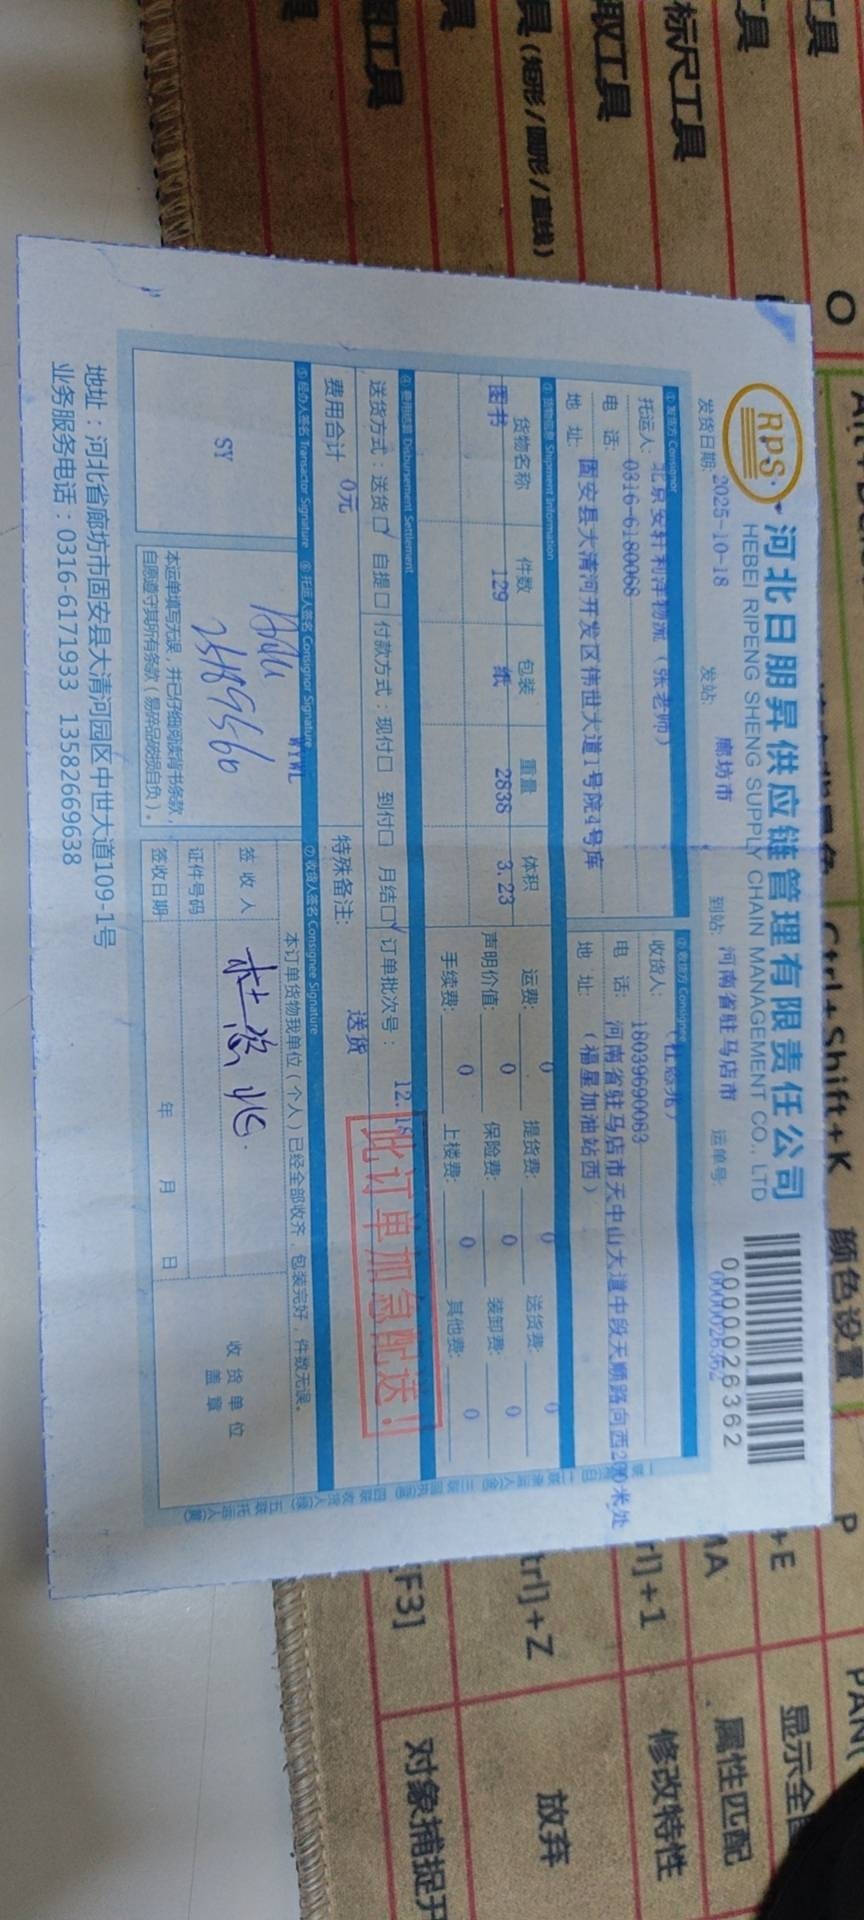 RPS
河北日朋昇供应链管理有限责任公司
HEBEI RIPENG SHENG SUPPLY CHAIN MANAGEMENT CO., LTD
0000026362
发货日期: 2025-10-18 发站: 廊坊市 到站: 河南省驻马店市 运单号: 0000026362
①发货方 Consignor ②收货方 Consignee
托运人: 北京安轩利洋物流（张老师） 收货人:
电 话: 0316-6180068 电 话: 18039690083
地 址: 固安县大清河开发区伟世大道1号院4号库 地 址: 河南省驻马店市天中山大道中段天顺路向西200米处（福星加油站西）
③货物信息 Shipment Information
货物名称 件数 包装 重量 体积 运费: 0 提货费: 0 送货费: 0
图书 129 纸 2838 3.23 声明价值: 0 保险费: 0 装卸费: 0
手续费: 0 上楼费: 0 其他费: 0
④费用结算 Disbursement Settlement
送货方式: 送货口 自提口 付款方式: 现付口 到付口 月结口 订单批次号: 12.18
费用合计 0元 特殊备注: 送货
此订单加急配送!
⑤经办人签名 Transactor Signature ⑥托运人签名 Consignor Signature ⑦收货人签名 Consignee Signature
WYWL
SY
本订单货物我单位（个人）已经全部收齐，包装完好，件数无误。
签收人
收货单位
盖章
证件号码
签收日期 年 月 日
本运单填写无误，并已仔细阅读背书条款，
自愿遵守其所有条款（易碎品破损自负）。
地址：河北省廊坊市固安县大清河园区中世大道109-1号
业务服务电话：0316-6171933 13582669638
标尺工具
取工具
具(矩形/圆形/直线)
工具
O
Ctrl+Shift+K
颜色设置
P
显示全
属性匹配
修改特性
trl]+Z
放弃
[F3]
对象捕捉开